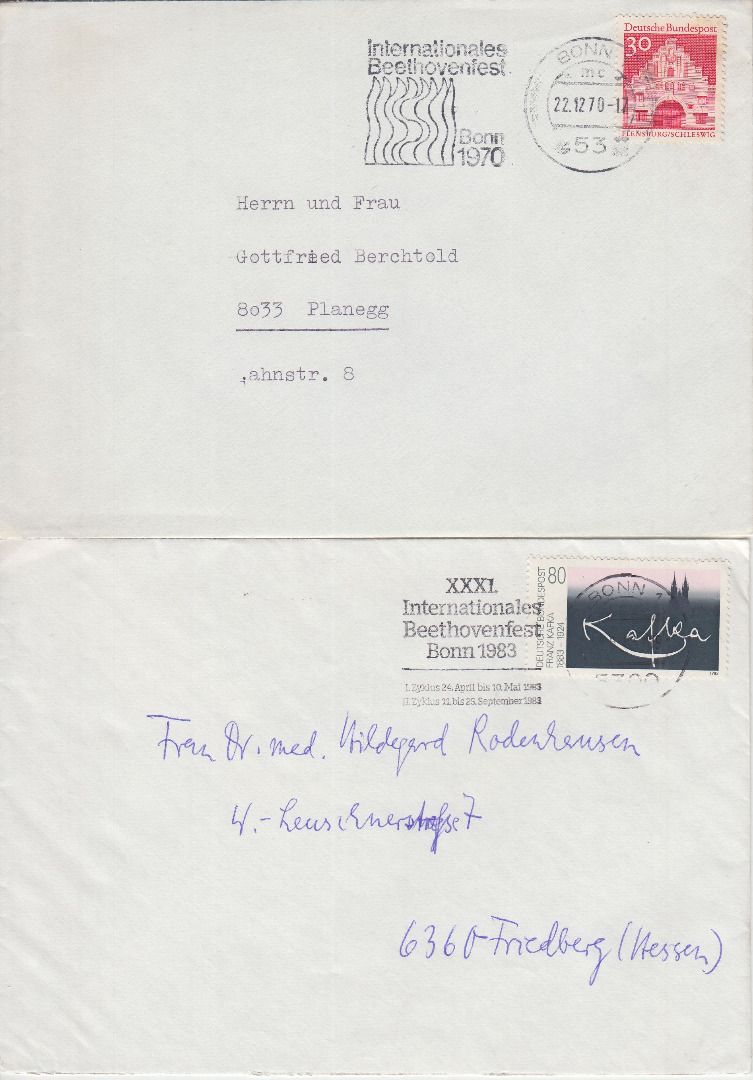 Internationales
Beethovenfest
Bonn
1970
BONN
mc
22.12.70-17
53
Deutsche Bundespost
30
FLENSBURG/SCHLESWIG
Herrn und Frau
Gottfried Berchtold
8033 Planegg
,ahnstr. 8
XXXI.
Internationales
Beethovenfest
Bonn 1983
I. Zyklus 24. April bis 10. Mai 1983
II. Zyklus 11. bis 25. September 1983
BONN 1
5300
80
DEUTSCHE BUNDESPOST
FRANZ KAFKA
1883 - 1924
Kafka
Frau Dr. med. Hildegard Rodenhausen
W.-Leuschnerstraße 7
6360 Friedberg (Hessen)